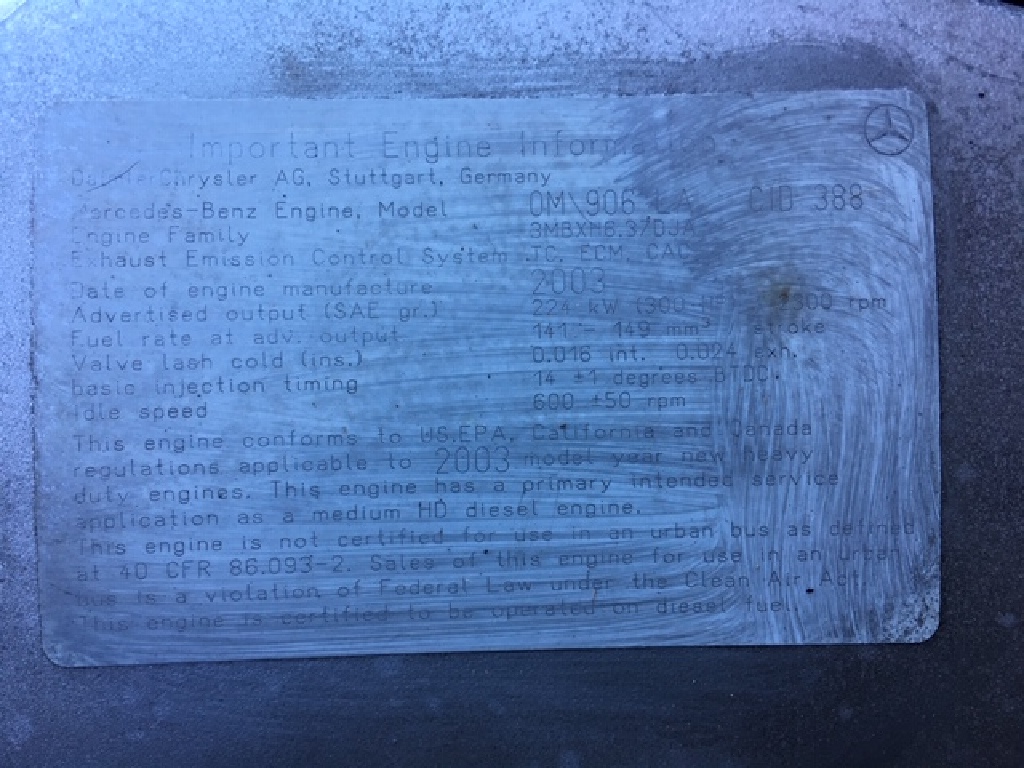 Important Engine Information
DaimlerChrysler AG, Stuttgart, Germany
Mercedes-Benz Engine, Model OM\906 LA CID 388
Engine Family
Exhaust Emission Control System TC, ECM, CAC
Date of engine manufacture 2003
Advertised output (SAE gr.) 224 kW (300 HP) rpm
Fuel rate at adv. output 141 - 149 mm³ / stroke
Valve lash cold (ins.) 0.016 int. 0.024 exh.
basic injection timing 14 ±1 degrees BTDC.
Idle speed 600 ±50 rpm
This engine conforms to US.EPA, California and Canada
regulations applicable to 2003 model year new heavy
duty engines. This engine has a primary intended service
application as a medium HD diesel engine.
This engine is not certified for use in an urban bus as defined
at 40 CFR 86.093-2. Sales of this engine for use in an urban
bus is a violation of Federal Law under the Clean Air Act.
This engine is certified to be operated on diesel fuel.